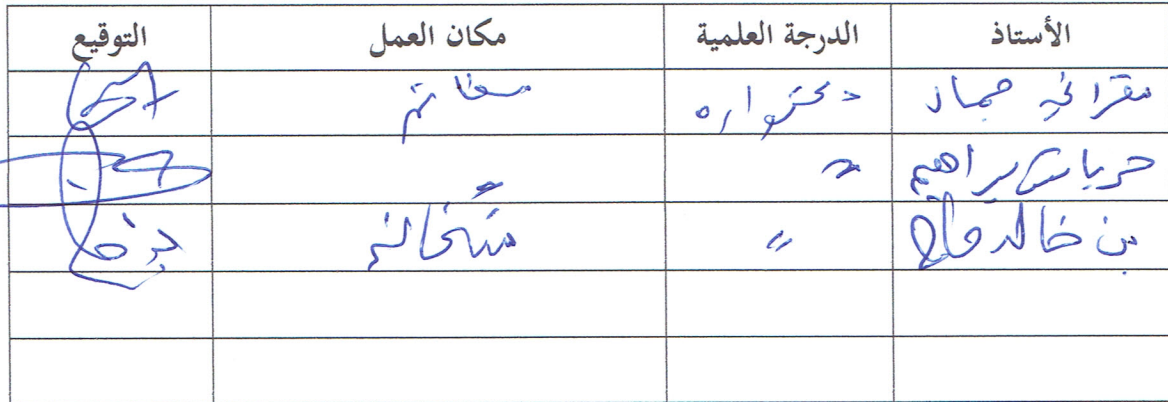 الأستاذ الدرجة العلمية مكان العمل التوقيع
مقراني جمال دكتوراه مستغانم
براهيم "
بن خالد الحاج " مستغانم